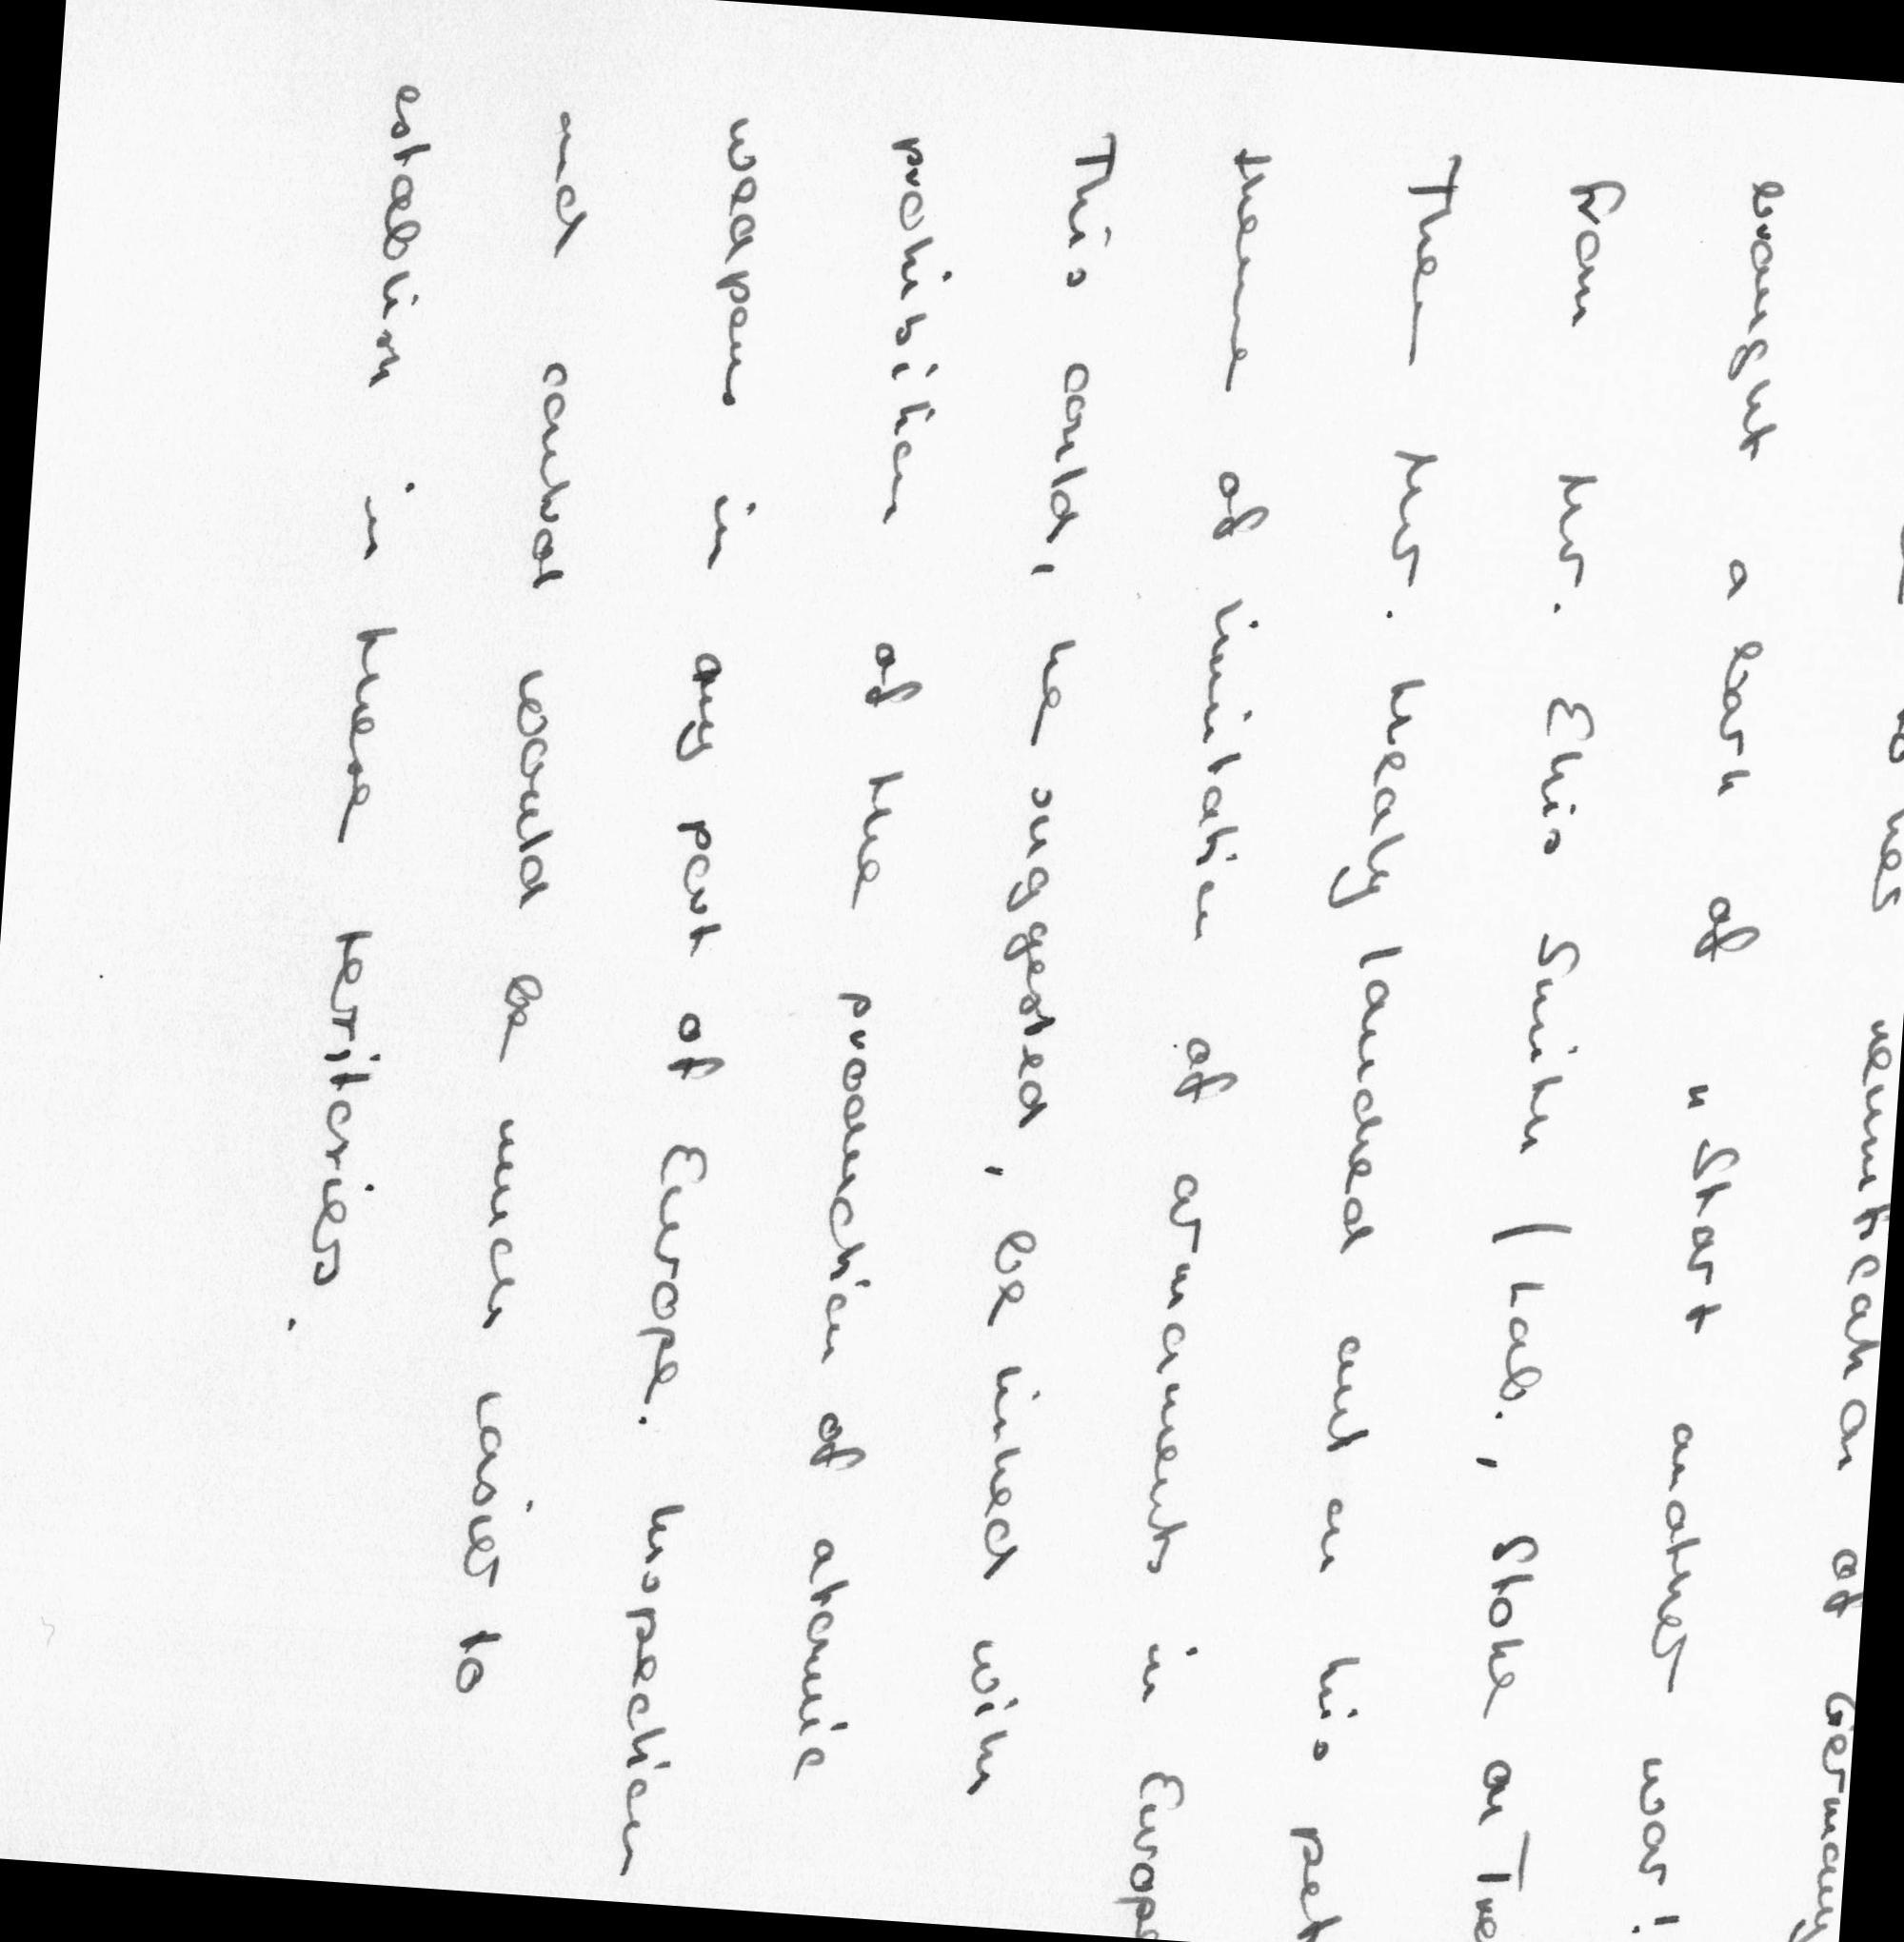 reunification of Germany
brought a bark of "Start another war!
from Mr. Ellis Smith (Lab., Stoke on Tre
Then Mr. Healy launched out on his pet
theme of limitation of armaments in Europe
This could, he suggested, be linked with
prohibition of the production of atomic
weapons in any part of Europe. Inspection
and control would be much easier to
establish in these territories.